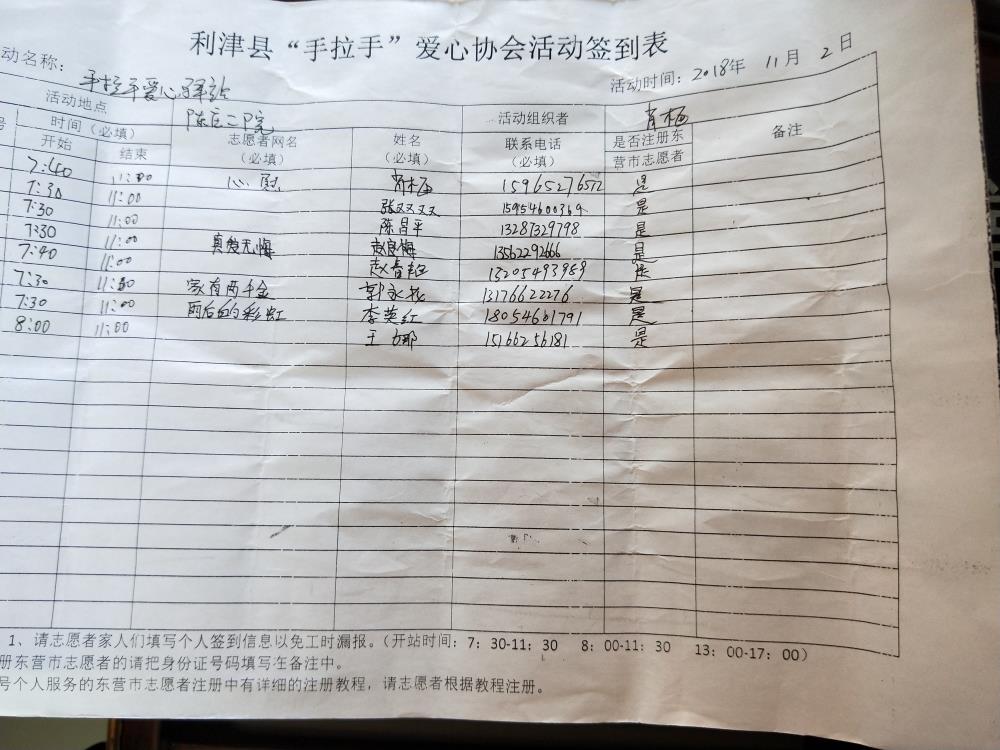 利津县“手拉手”爱心协会活动签到表
动名称： 手拉手爱心驿站 活动时间：2018年 11月 2日
活动地点 陈庄二院 活动组织者 肖梅
号 时间（必填） 志愿者网名（必填） 姓名（必填） 联系电话（必填） 是否注册东营市志愿者 备注
开始 结束
7:40 11:00 心 肖梅 15965276572 是
7:30 11:00 张双双 15954600369 是
7:30 11:00 陈昌平 13287329798 是
7:30 11:00 真爱无悔 赵良梅 13562292666 是
7:40 11:00 赵春 15205493989 是
7:30 11:30 家有两千金 郭永 13176622276 是
7:30 11:00 雨后的彩虹 李英红 18054601791 是
8:00 11:00 王娜 15166256181 是
1、请志愿者家人们填写个人签到信息以免工时漏报。（开站时间：7：30-11：30 8：00-11：30 13：00-17：00）
册东营市志愿者的请把身份证号码填写在备注中。
号个人服务的东营市志愿者注册中有详细的注册教程，请志愿者根据教程注册。